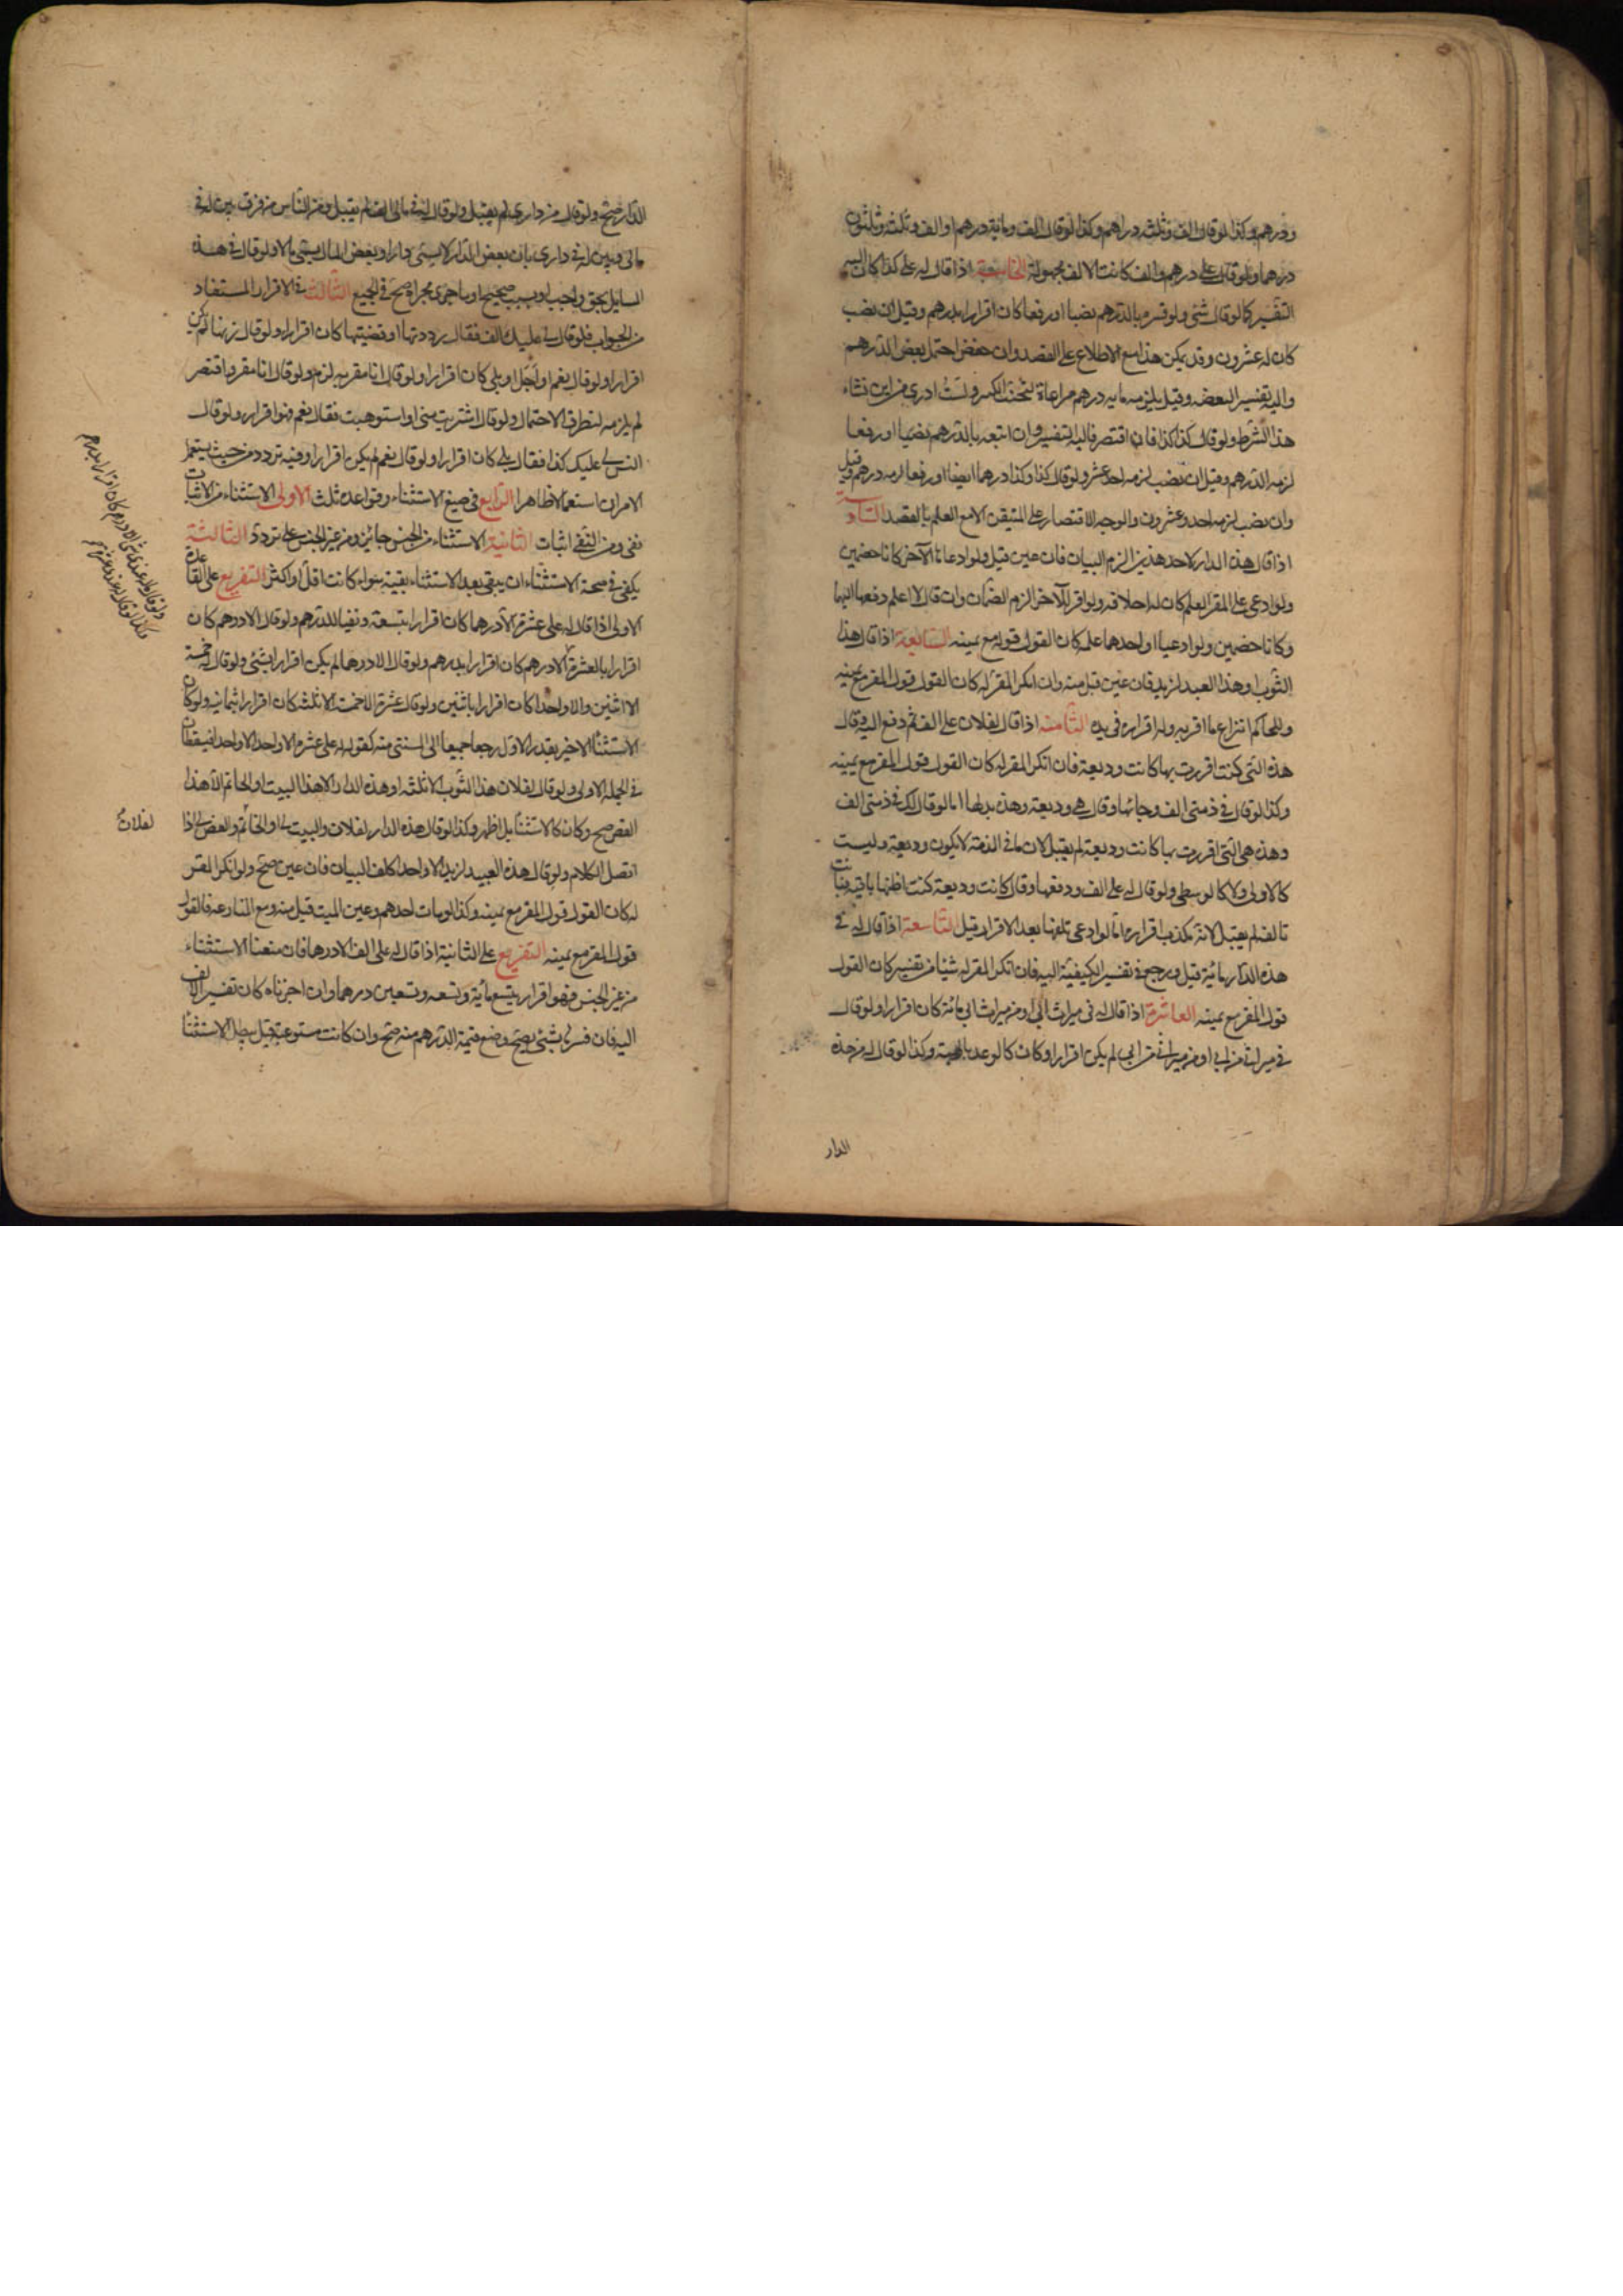 ودرهم وكذا لو قال الف وثلثه دراهم وكذا لو قال الف ومائة درهم او الف وثلثة وثلثون
درهما ولو قال علي درهم والف كانت الالف مجهولة الخامسة اذا قال له علي كذا كان اليه
التفسير كما لو قال شئ ولو فسره بالدرهم نصبا او رفعا كان اقرارا بدرهم وقيل ان نصب
كان له عشرون وقد يمكن هذا مع الاطلاع على القصد وان خفض احتمل بعض الدرهم
واليه تفسير البعضه وقيل يلزمه مايه درهم مراعاة لتجنب الكسر ولست ادري من اين نشاء
هذا الشرط ولو قال كذا كذا فان اقتصر فاليه التفسير وان اتبعه بالدرهم نصبا او رفعا
لزمه الدرهم وقيل ان نصب لزمه احد عشر ولو قال كذا وكذا درهما ايضا او رفعا لزمه درهم وقيل
وان نصب لزمه احد وعشرون والوجه الاقتصار على المتيقن الا مع العلم بالقصد السادسة
اذا قال هذه الدار لاحد هذين الزم البيان فان عين قبل ولو ادعاها الآخر كانا خصمين
ولو ادعى على المقر العلم كان له احلافه ولو اقر للآخر لزم الضمان وان قال لا اعلم دفعها اليهما
وكانا خصمين ولو ادعيا او احدهما علمه كان القول قوله مع يمينه السابعة اذا قال هذا
الثوب او هذا العبد لزيد فان عين قبل منه وان انكر المقر له كان القول قول المقر مع يمينه
وللحاكم انتزاع ما اقر به وله اقراره في يده الثامنة اذا قال لفلان علي الف ثم دفع اليه وقال
هذه التي كنت اقررت بها كانت وديعة فان انكر المقر له كان القول قول المقر مع يمينه
وكذا لو قال في ذمتي الف وجائها وقال هي وديعة وهذه بدلها اما لو قال لك في ذمتي الف
وهذه هي التي اقررت بها كانت وديعة لم يقبل لان ما في الذمة لا يكون وديعة وليست
كالاولى ولا كالوسطى ولو قال له علي الف ودفعها وقال كانت وديعة كنت اظنها باقية فبانت
تالفه لم يقبل لانه مكذب اقراره اما لو ادعى تلفها بعد الاقرار قبل التاسعة اذا قال له في
هذه الدار مائة قبل ورجع في تفسير الكيفية اليه فان انكر المقر له شيئا من تفسيره كان القول
قول المقر مع يمينه العاشرة اذا قال له في ميراث ابي او من ميراث ابي مائة كان اقرارا ولو قال
في ميراثي من ابي او من ميراثي من ابي لم يكن اقرارا وكان كالوعد بالهبة وكذا لو قال له من هذه
الدار
الدار صح ولو قال من داري لم يقبل ولو قال له في مالي الف لم يقبل ومن الناس من فرق بين له في
مالي وبين له في داري بان بعض الدار لا يسمى دارا وبعض المال يسمى مالا ولو قال في هذه
المسايل بحق واجب او بسبب صحيح او ما جرى مجراه صح في الجميع الثالث في الاقرار المستفاد
من الجواب فلو قال لي عليك الف فقال رددتها او قضيتها كان اقرارا ولو قال زنها لم يكن
اقرارا ولو قال نعم او اجل او بلى كان اقرارا ولو قال انا مقر به لزم ولو قال انا مقر واقتصر
لم يلزمه لتطرق الاحتمال ولو قال اشتريت مني او استوهبت فقال نعم فهو اقرار ولو قال
اليس لي عليك كذا فقال بلى كان اقرارا ولو قال نعم لم يكن اقرارا وفيه تردد من حيث يستعمل
الامران استعمالا ظاهرا الرابع في صيغ الاستثناء وقواعده ثلث الاولى الاستثناء من الاثبات
نفي ومن النفي اثبات الثانية الاستثناء من الجنس جائز ومن غير الجنس على تردد الثالثة
يكفي في صحة الاستثناء ان يبقى بعد الاستثناء بقية سواء كانت اقل او اكثر التفريع على القاعدة
الاولى اذا قال له علي عشرة الا درهما كان اقرارا بتسعة ونفيا للدرهم ولو قال الا درهم كان
اقرارا بالعشرة الا درهم كان اقرارا بدرهم ولو قال الا درهما لم يكن اقرارا بشئ ولو قال له خمسة
الا اثنين والا واحدا كان اقرارا باثنين ولو قال عشرة الا خمسة الا ثلثه كان اقرارا بثمانية ولو كان
الاستثناء الاخير بقدر الاول رجعا جميعا الى المستثنى منه كقوله له علي عشرة الا واحدا الا واحدا فيسقطان
من الجملة الاولى ولو قال لفلان هذا الثوب الا ثلثه او هذه الدار الا هذا البيت او الخاتم الا هذا
الفص صح وكان كالاستثناء بل اظهر وكذا لو قال هذه الدار لفلان والبيت لي او الخاتم والفص لي اذا
اتصل الكلام ولو قال هذه العبيد لزيد الا واحدا كلف البيان فان عين صح ولو انكر المقر
له كان القول قول المقر مع يمينه وكذا لو مات احدهم وعين الميت قبل منه ومع المنازعة فالقول
قول المقر مع يمينه التفريع على الثانية اذا قال له علي الف الا درهما فان منعنا الاستثناء
من غير الجنس فهو اقرار بتسع مائة وتسعة وتسعين درهما وان اجزناه كان تفسير الالف
اليه فان فسر بشئ يصح وضع قيمة الدرهم منه صح وان كانت مستوعبة قيل يبطل الاستثناء
لفلان